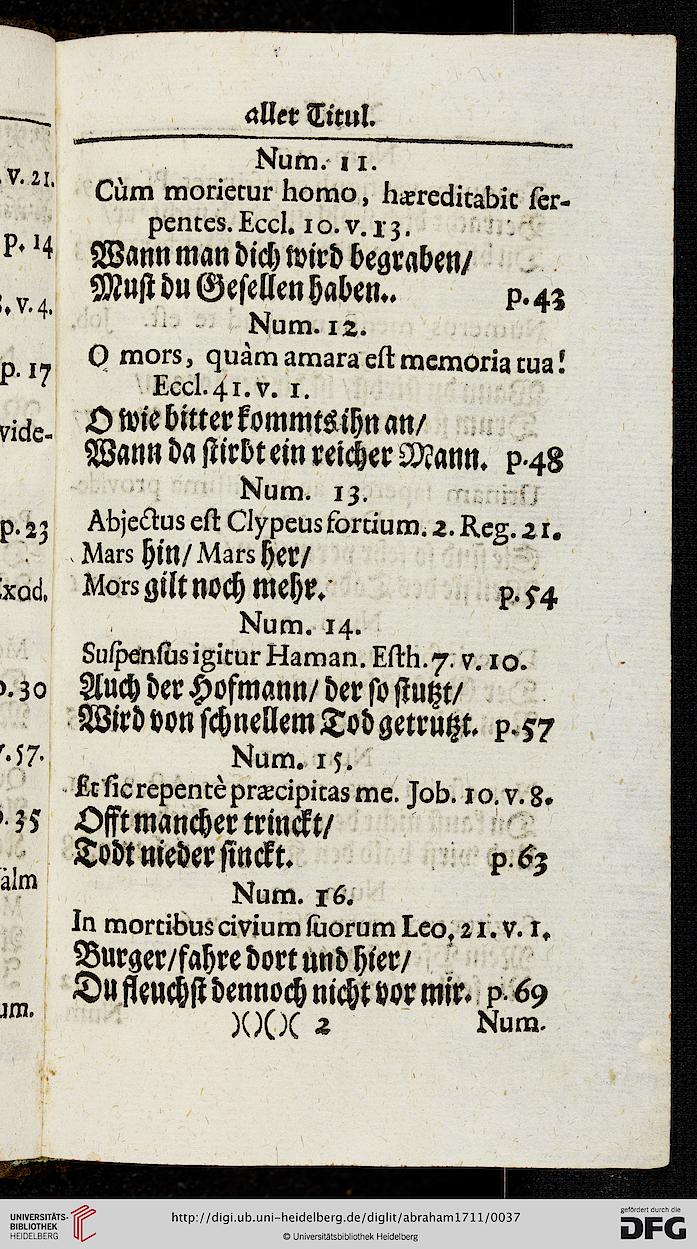 aller Titul.
Num. 11.
Cùm morietur homo, hæreditabit ſer-
pentes. Eccl. 10. v. 13.
Wann man dich wird begraben/
Muſt du Geſellen haben..   p. 43
Num. 12.
O mors, quàm amara eſt memoria tua!
Eccl. 41. v. 1.
O wie bitter kommts ihn an/
Wann da ſtirbt ein reicher Mann.   p. 48
Num. 13.
Abjectus eſt Clypeus fortium. 2. Reg. 21.
Mars hin/ Mars her/
Mors gilt noch mehr.   p. 54
Num. 14.
Suſpenſus igitur Haman. Eſth. 7. v. 10.
Auch der Hofmann/ der ſo ſtutzt/
Wird von ſchnellem Tod getrutzt.   p. 57
Num. 15.
Et ſic repentè præcipitas me. Job. 10. v. 8.
Offt mancher trinckt/
Todt nieder ſinckt.   p. 63
Num. 16.
In mortibus civium ſuorum Leo, 21. v. 1.
Burger/ fahre dort und hier/
Du fleuchſt dennoch nicht vor mir.   p. 69
)()()( 2   Num.
v. 21.
p. 14
v. 4.
p. 17
vide-
p. 23
Exod.
p. 30
v. 57.
p. 35
um.
UNIVERSITÄTS-
BIBLIOTHEK
HEIDELBERG
http://digi.ub.uni-heidelberg.de/diglit/abraham1711/0037
© Universitätsbibliothek Heidelberg
gefördert durch die
DFG